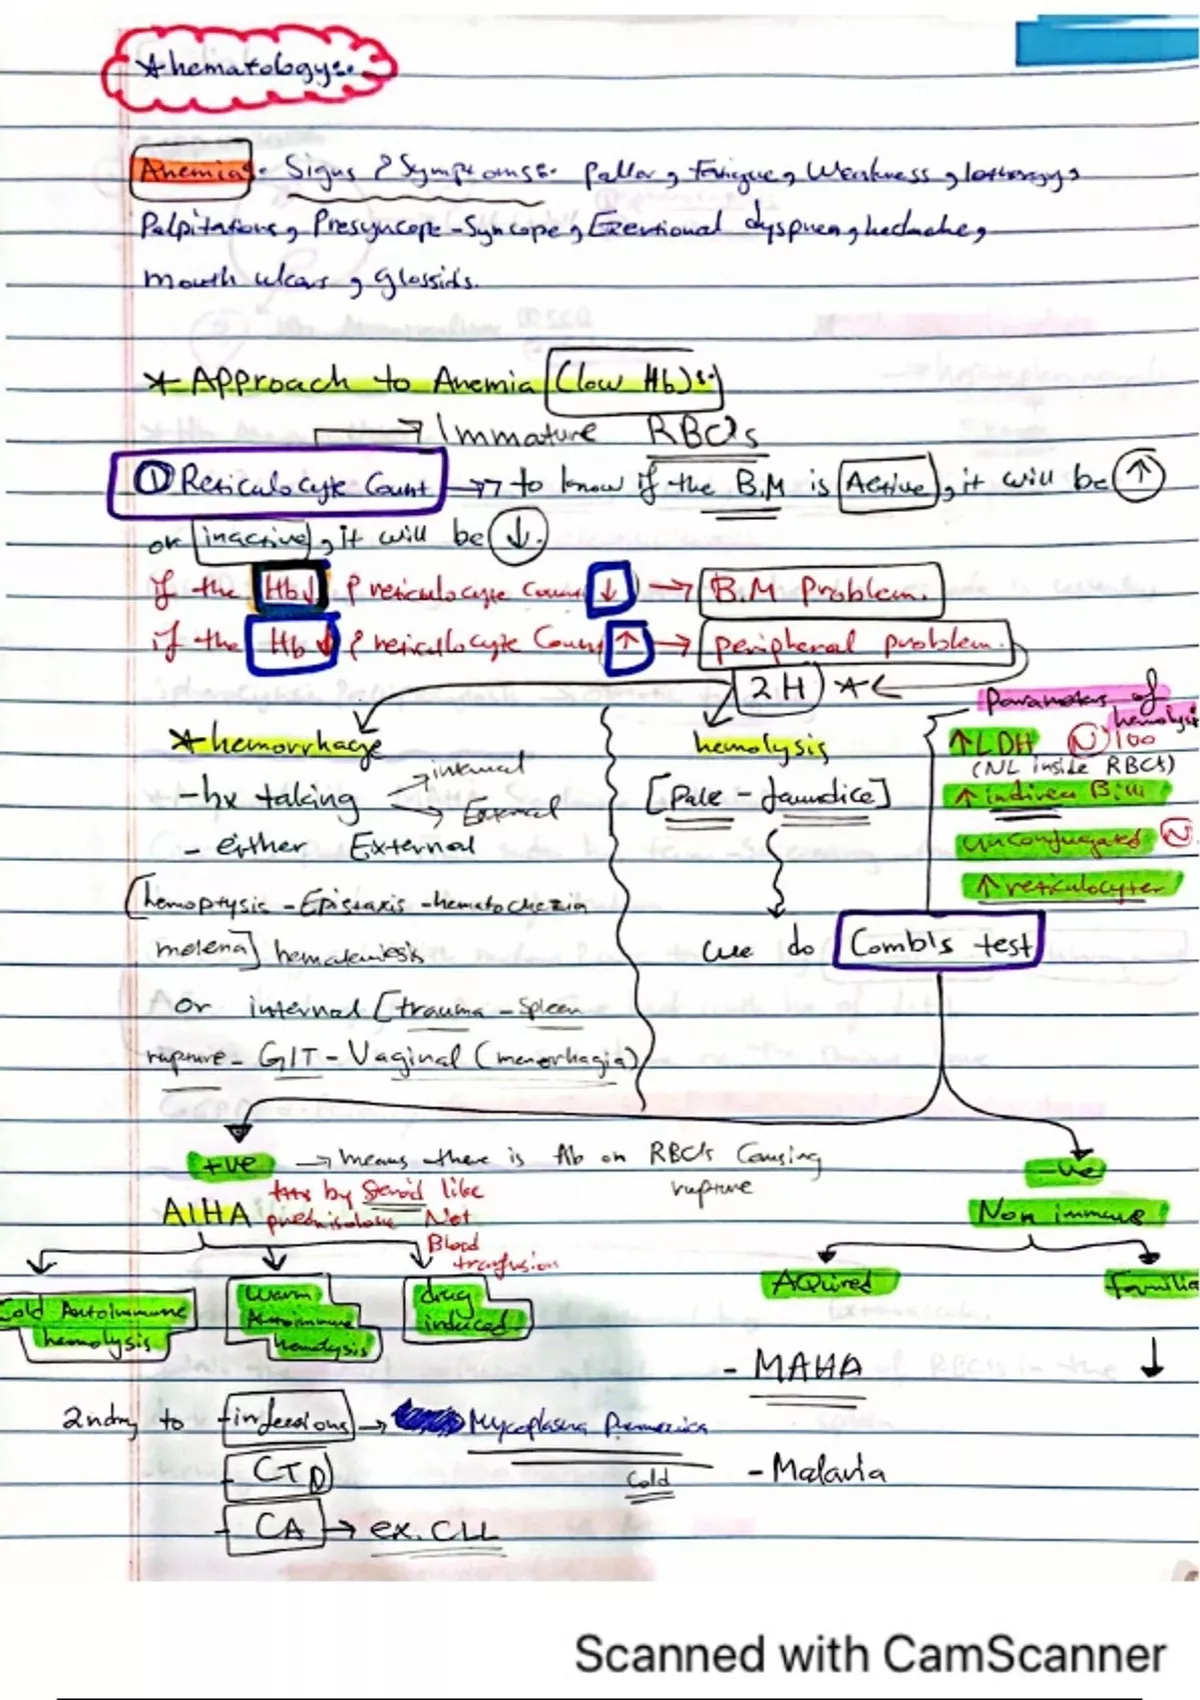 * hematology:
Anemia: Signs & Symptoms: Pallor, Fatigue, Weakness, lethargy,
Palpitations, Presyncope - Syncope, Exertional dyspnea, headache,
mouth ulcers, glossitis.
* Approach to Anemia (low Hb):
→ Immature RBCs
① Reticulocyte Count → to know if the B.M is Active, it will be ↑
or inactive, it will be ↓.
if the Hb↓ & reticulocyte Count ↓ → B.M Problem.
if the Hb↓ & reticulocyte Count ↑ → peripheral problem.
2H *
Parameters of hemolysis
* hemorrhage
hemolysis
↑LDH (N) 100
(NL inside RBCs)
- hx taking → internal
→ External
[Pale - Jaundice]
↑ indirect Bili
- either External
unconjugated (N)
↑ reticulocyter
[hemoptysis - Epistaxis - hematochezia
melena] hematemesis
we do Comb's test
Or internal [trauma - Spleen
rupture - GIT - Vaginal (menorrhagia)
+ve → means there is Ab on RBCs Causing
rupture
-ve
AIHA
ttt by Steroid like
prednisolone Not
Blood
tranfusion
Non immune
Cold Autoimmune
hemolysis
Warm
Autoimmune
hemolysis
drug
induced
AQuired
familia
- MAHA
↓
2ndry to - infections → Mycoplasma Pneumonia
Cold
- Malaria
- CTD
- CA → ex. CLL
Scanned with CamScanner